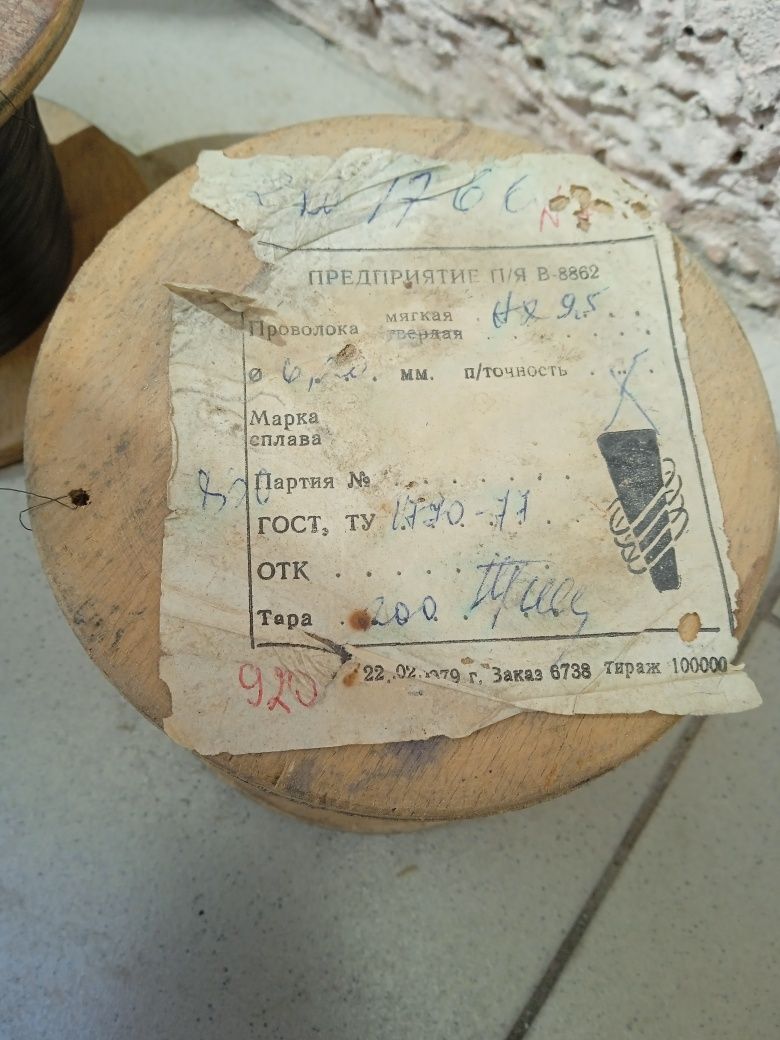 1766
ПРЕДПРИЯТИЕ П/Я В-8862
Проволока мягкая твердая
ø мм. п/точность
Марка сплава
Партия №
ГОСТ, ТУ 1770-77
ОТК
Тара 200
920
22.02.1979 г. Заказ 6738 Тираж 100000